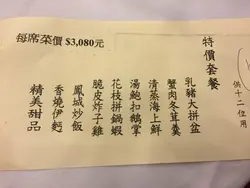 特價套餐
供十二位用
乳豬大拼盆
蟹肉冬茸羹
清蒸海上鮮
湯鮑扣鵝掌
花枝拼鍋蝦
脆皮炸子雞
鳳城炒飯
香燒伊麵
精美甜品
每席菜價 $3,080元